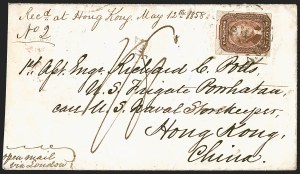 Recd at Hong Kong, May 12th 1858.
No 2
1st Asst. Engr. Richard C. Potts,
U. S. Frigate Powhatan,
care U. S. Naval Storekeeper,
Hong Kong,
China.
open mail
via London